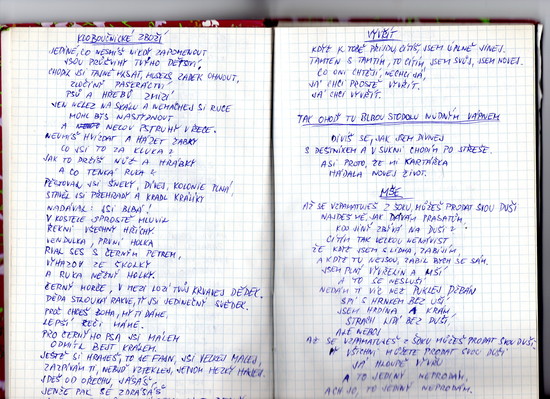 KLOBOUČNICKÉ ZBOŽÍ
JEDINÉ, CO NESMÍŠ NIKDY ZAPOMENOUT
JSOU PRŮŠVIHY TVÝHO DĚTSTVÍ,
CHODIL JSI TAJNĚ MUSEL ZADEK OHNOUT,
ZLOČINY PASERÁCTVÍ
PSŮ A HŘEBŮ ZMIZÍ
JEN NELEZ NA SKÁLU A NEMÁCHEJ SI RUCE
MOHL BYS NASTYDNOUT
A NELOV PSTRUHY V ŘECE.
NEUMÍŠ HVÍZDAT A HÁZET ŽABKY
CO JSI TO ZA KLUKA?
JAK TO DRŽÍŠ NŮŽ A HRÁBKY
A CO TENHLE RUKA?
PĚSTOVAL JSI ŠNEKY, DÍVEJ, KOLONIE PLNÁ,
STAVĚL JSI PŘEHRADY A KRADL KRÁLÍKY
NADÁVAL: JSI BLBÁ!
V KOSTELE SPROSTĚ MLUVIL
ŘEKNI VŠECHNY HŘÍCHY
VENDULKA, PRVNÍ HOLKA
RVAL SES S ČERNÝM PETREM,
VYHAZOV ZE ŠKOLKY
A RUKA NĚŽNÝ HOLKY.
ČERNÝ MOŘE, V MEZI LEŽÍ TVŮJ KRVAVEJ DĚDEK.
DĚDA STROUHÁ RAKVE, TY JSI JEDINEČNÝ SVĚDEK.
PROČ CHCEŠ BOHA, MY TI DÁME,
LEPŠÍ ŘEČI MÁME.
PRO ČERNÝHO PSA JSI MÁLEM
ODMÍTL BEJT KRÁLEM,
JEŠTĚ SI HRAJEŠ, TO JE FAJN, JSI VELKEJ MALEJ,
ZAZPÍVÁM TI, NEBUĎ VZTEKLEJ, JENOM HEZKÝ
JDEŠ OD OŘECHU, JÁSÁŠ,
JENŽE PAK SE ZDRÁSÁŠ
VYVŘÍT
KDYŽ K TOBĚ PŘIJDU, CÍTÍŠ, JSEM ÚPLNĚ JINEJ.
TAMTEN S TAMTÍM, TO CÍTÍM, JSEM SVŮJ, JSEM NOVEJ.
CO ONI CHTĚJÍ, NECHCI JÁ,
JÁ CHCI PROSTĚ VYVŘÍT.
JÁ CHCI VYVŘÍT.
TAK OHOĎ TU BLBOU STODOLU NUDNÝM VÁPNEM
DIVÍŠ SE, JAK JSEM DIVNEJ
S DEŠTNÍKEM A V SUKNI CHODÍM PO STŘEŠE.
ASI PROTO, ŽE MI KARTÁŘKA
HÁDALA NOVEJ ŽIVOT.
MŠE
AŽ SE VZPAMATUJEŠ Z ŠOKU, MŮŽEŠ PRODAT SVOU DUŠI
NAJDEŠ MĚ, JAK DÁVÁM PRASATŮM,
KDO JINÝ ZBÝVÁ NA DUŠI?
CÍTÍM TAK VELKOU NENÁVIST
ŽE KDYŽ JSEM S LIDMA, ZABÍJÍM
A KDYŽ TU NEJSOU, ZABIL BYCH SE SÁM.
JSEM PLNÝ VÝVŘELIN A MŠÍ
A TO SE NESLUŠÍ
NEDÁM TI VÍC NEŽ PUKLEJ DŽBÁN
SPÍ S HRNKEM BEZ UŠÍ
JSEM HADINA A KRÁM
STRAŠÍ LIDÍ BEZ DUŠÍ,
ALE NEBOJ
AŽ SE VZPAMATUJEŠ Z ŠOKU MŮŽEŠ PRODAT SVOU DUŠI
A VŠICHNI MŮŽETE PRODAT SVOU DUŠI
JÁ HLOUPĚ VYVŘU
A TO JEDINÝ NEPRODÁM,
ACH JO, TO JEDINÝ NEPRODÁM.